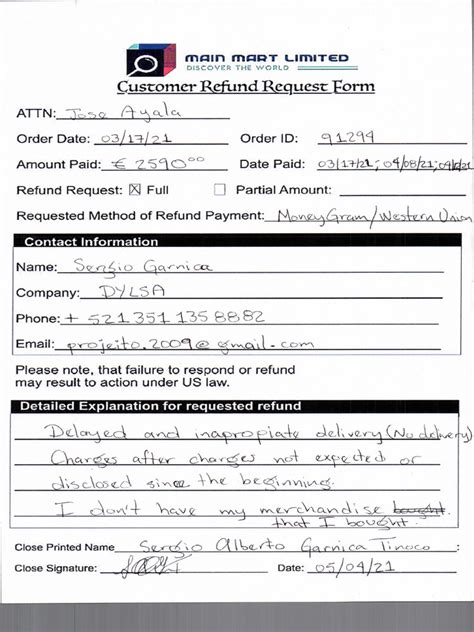 MAIN MART LIMITED
DISCOVER THE WORLD
Customer Refund Request Form
ATTN: Jose Ayala
Order Date: 03/17/21 Order ID: 91299
Amount Paid: € 2590⁰⁰ Date Paid: 03/17/21; 04/08/21;
Refund Request: ☒ Full ☐ Partial Amount:
Requested Method of Refund Payment: MoneyGram/Western Union
Contact Information
Name: Sergio Garnica
Company: DYLSA
Phone: + 521 351 135 8882
Email: projeito.2009@gmail.com
Please note, that failure to respond or refund
may result to action under US law.
Detailed Explanation for requested refund
Delayed and inapropiate delivery (No delivery)
Charges after charges not expected or
disclosed since the beginning.
I don't have my merchandise bought
that I bought.
Close Printed Name Sergio Alberto Garnica Tinoco
Close Signature: Date: 05/04/21